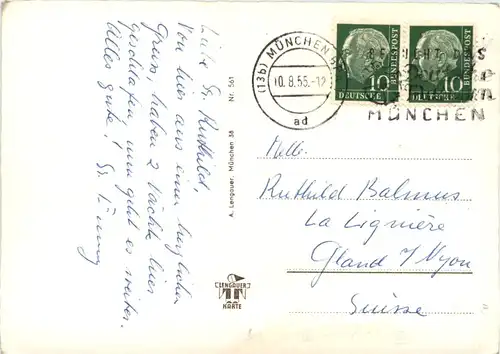 Liebe Sr. Ruthild,
Von hier aus einen herzlichen
Gruss, haben 2 Nächte hier
geschlafen nun geht es weiter.
Alles gute! Sr.
A. Lengauer, München 38 Nr. 561
LENGAUER
KARTE
(13b) MÜNCHEN
0.8.55.-12
ad
DEUTSCHE BUNDESPOST 10
DEUTSCHE BUNDESPOST 10
MÜNCHEN
Melle.
Ruthild Balmus
La Lignière
Gland s/Nyon
Suisse